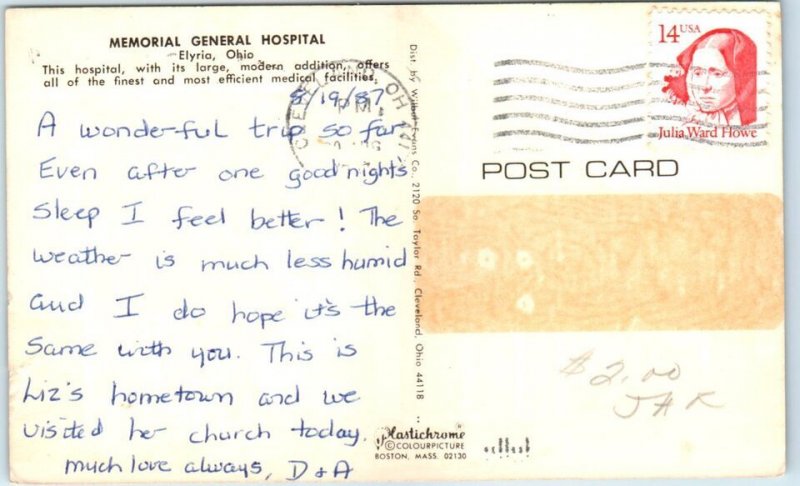 MEMORIAL GENERAL HOSPITAL
Elyria, Ohio
This hospital, with its large, modern addition, offers
all of the finest and most efficient medical facilities.
8/19/87
A wonderful trip so far
Even after one good night's
sleep I feel better! The
weather is much less humid
and I do hope it's the
same with you. This is
Liz's hometown and we
visited her church today.
much love always, D & A
Dist. by Wilbur Evans Co., 2120 So. Taylor Rd., Cleveland, Ohio 44118
PM
OH
14 USA
Julia Ward Howe
POST CARD
$2.00
JAR
Plastichrome
© COLOURPICTURE
BOSTON, MASS. 02130